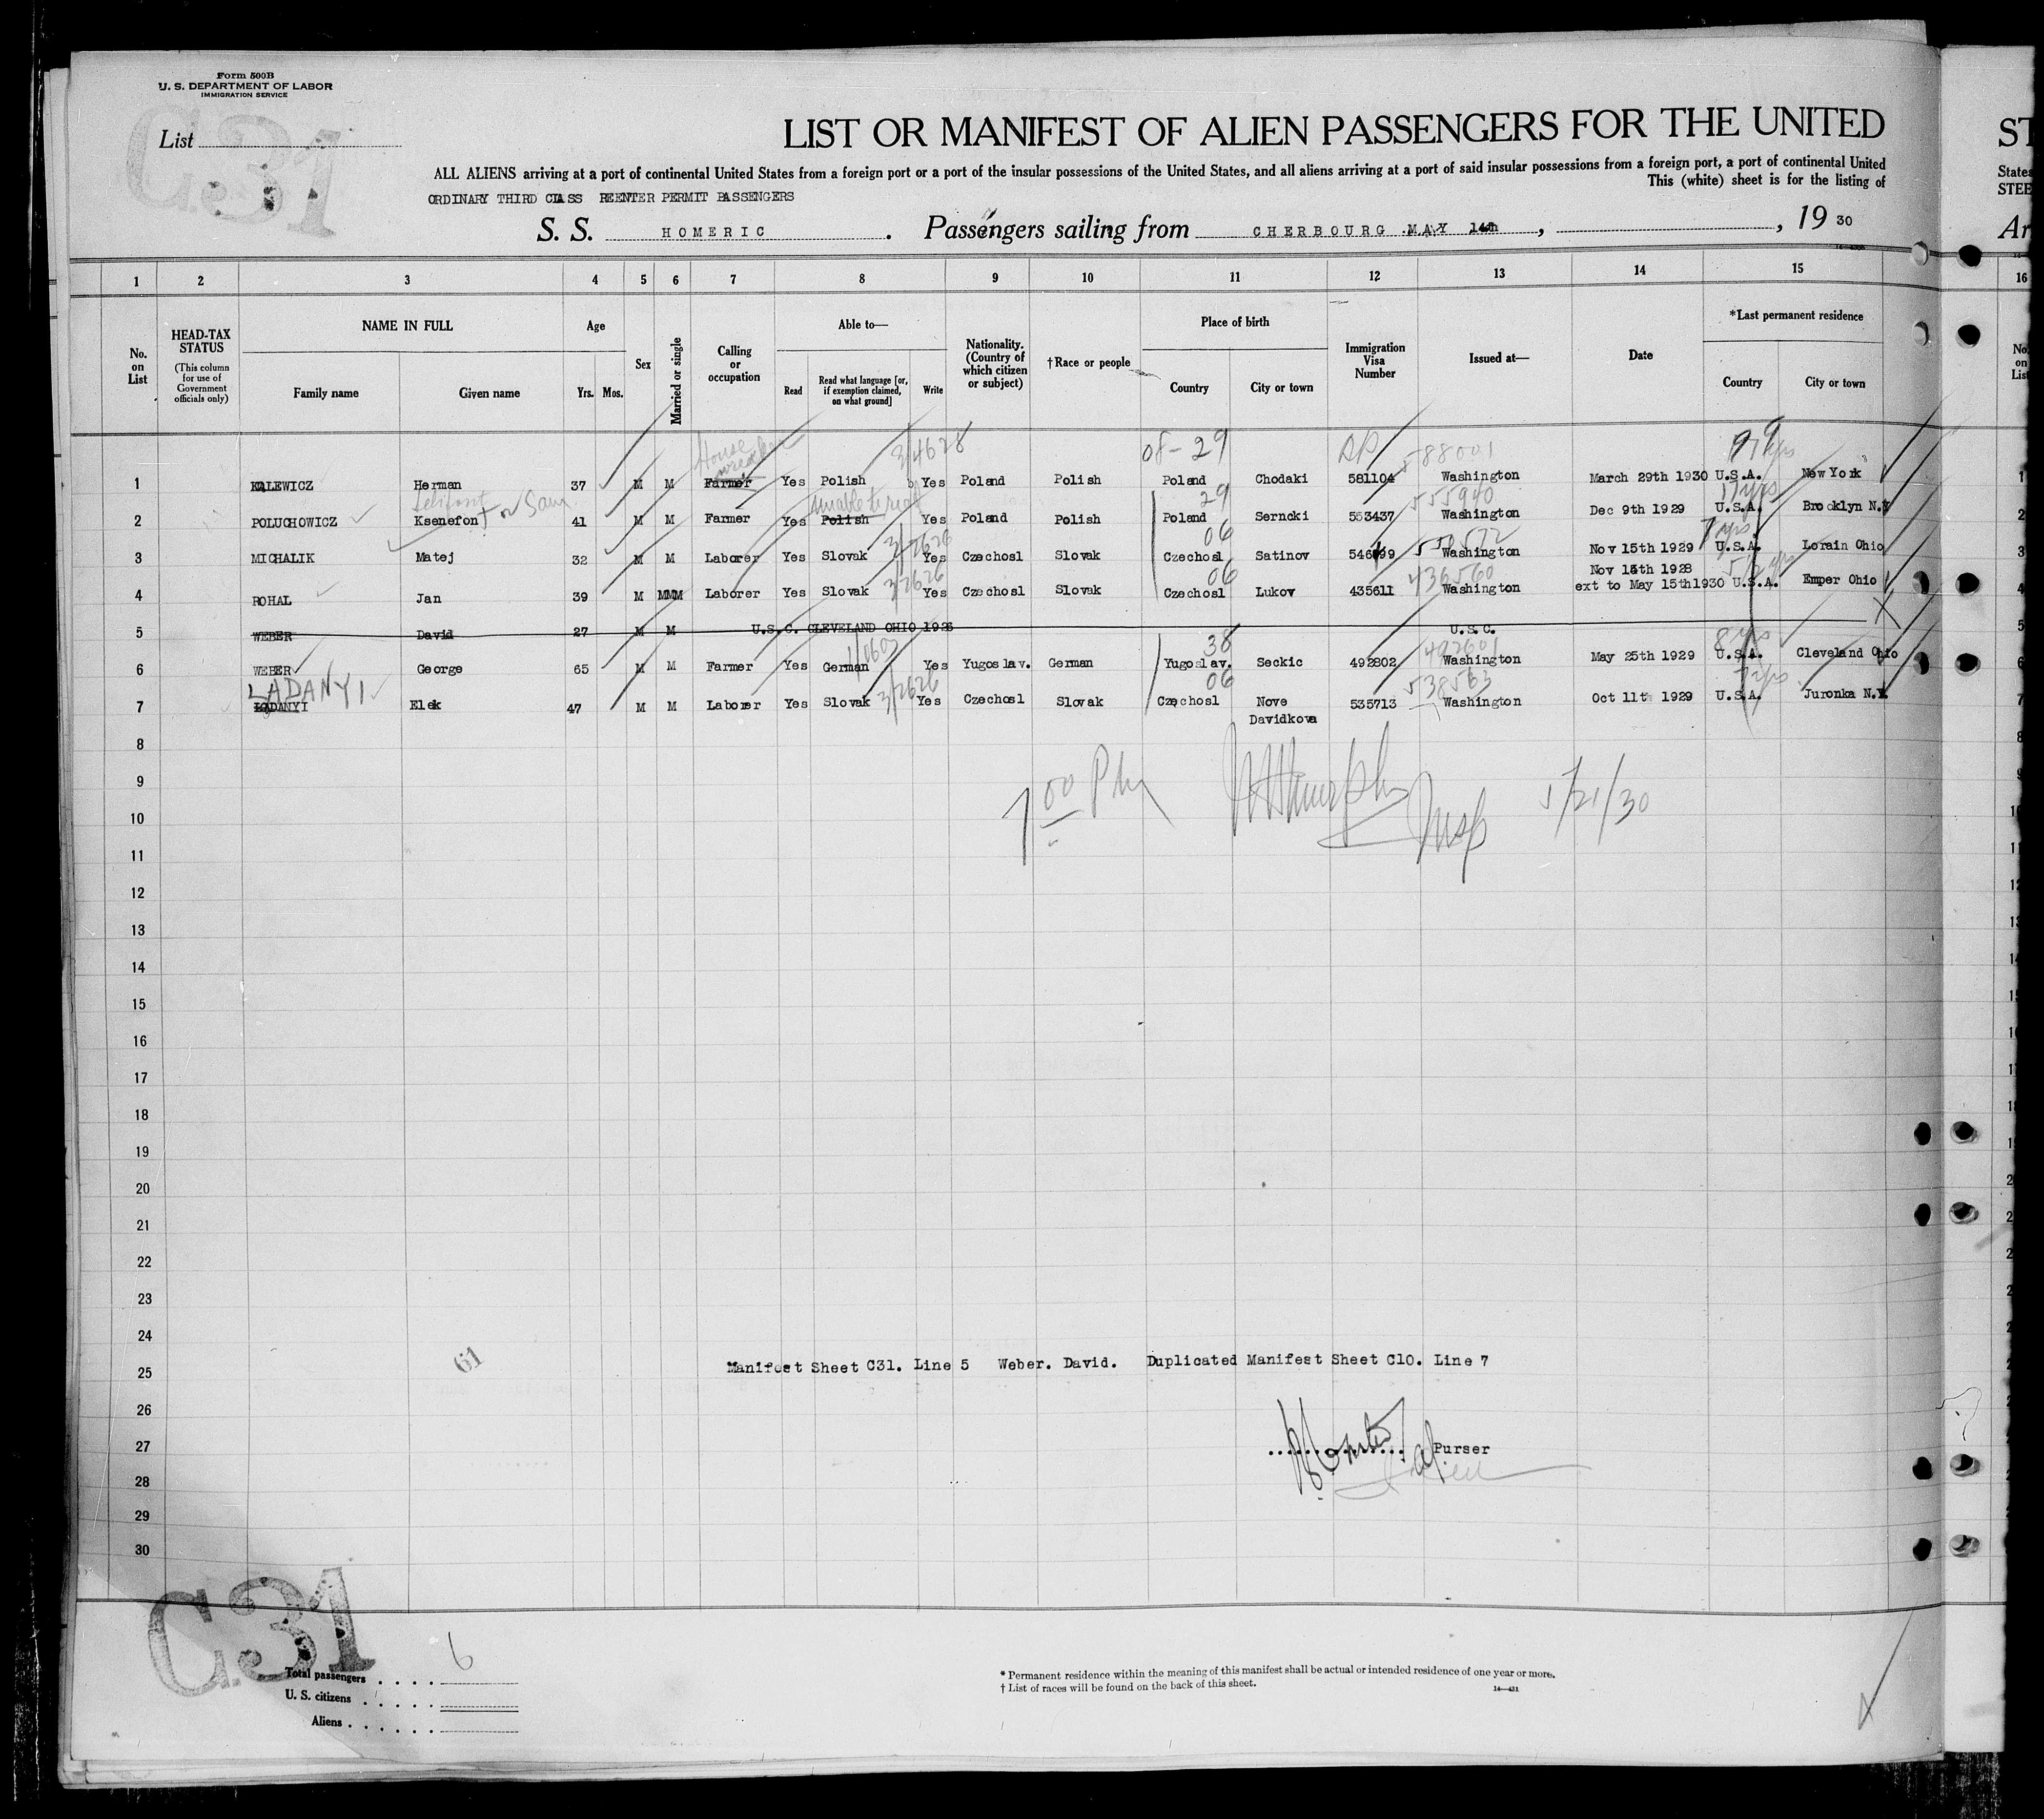 Form 500B
U. S. DEPARTMENT OF LABOR
IMMIGRATION SERVICE
List
C31
LIST OR MANIFEST OF ALIEN PASSENGERS FOR THE UNITED
ST
ALL ALIENS arriving at a port of continental United States from a foreign port or a port of the insular possessions of the United States, and all aliens arriving at a port of said insular possessions from a foreign port, a port of continental United
States
This (white) sheet is for the listing of
STEE
ORDINARY THIRD CLASS REENTER PERMIT PASSENGERS
S. S. HOMERIC. Passengers sailing from CHERBOURG MAY 14th, , 19 30
Ar
1 2 3 4 5 6 7 8 9 10 11 12 13 14 15 16
No. on List
HEAD-TAX STATUS (This column for use of Government officials only)
NAME IN FULL
Family name Given name
Age
Yrs. Mos.
Sex
Married or single
Calling or occupation
Able to—
Read Read what language [or, if exemption claimed, on what ground] Write
Nationality. (Country of which citizen or subject)
†Race or people
Place of birth
Country City or town
Immigration Visa Number
Issued at—
Date
*Last permanent residence
Country City or town
No. on List
House wrecker 3/4628 08-29 RP 588001 9 yrs
1 KALEWICZ Herman 37 M M Farmer Yes Polish Yes Poland Polish Poland Chodaki 581104 Washington March 29th 1930 U.S.A. New York 1
or Sam unable to read 29 555940 17 yrs
2 POLUCHOWICZ Ksenefon 41 M M Farmer Yes Polish Yes Poland Polish Poland Serncki 553437 Washington Dec 9th 1929 U.S.A. Brooklyn N.Y. 2
3/2626 06 550572 7 yrs
3 MICHALIK Matej 32 M M Laborer Yes Slovak Yes Czechosl Slovak Czechosl Satinov 546199 Washington Nov 15th 1929 U.S.A. Lorain Ohio 3
3/2626 06 436560 5 1/2 yrs
4 ROHAL Jan 39 M MMM Laborer Yes Slovak Yes Czechosl Slovak Czechosl Lukov 435611 Washington Nov 15th 1928 ext to May 15th 1930 U.S.A. Emper Ohio 4
5 WEBER David 27 M M U.S.C. CLEVELAND OHIO 1926 U.S.C. X 5
1/0602 38 492601 8 yrs
6 WEBER George 65 M M Farmer Yes German Yes Yugoslav. German Yugoslav. Seckic 492802 Washington May 25th 1929 U.S.A. Cleveland Ohio 6
LADANYI 3/2626 06 538563 7 yrs
7 LODANYI Elek 47 M M Laborer Yes Slovak Yes Czechosl Slovak Czechosl Nove Davidkova 535713 Washington Oct 11t 1929 U.S.A. Juronka N.Y. 7
8
9
10
1 00 PM Murphy Insp 5/21/30
11
12
13
14
15
16
17
18
19
20
21
22
23
24
61
25 Manifest Sheet C31. Line 5 Weber. David. Duplicated Manifest Sheet C10. Line 7
26
27 Purser
28
29
30
C31
Total passengers 6
U. S. citizens
Aliens
* Permanent residence within the meaning of this manifest shall be actual or intended residence of one year or more.
† List of races will be found on the back of this sheet.
14—431